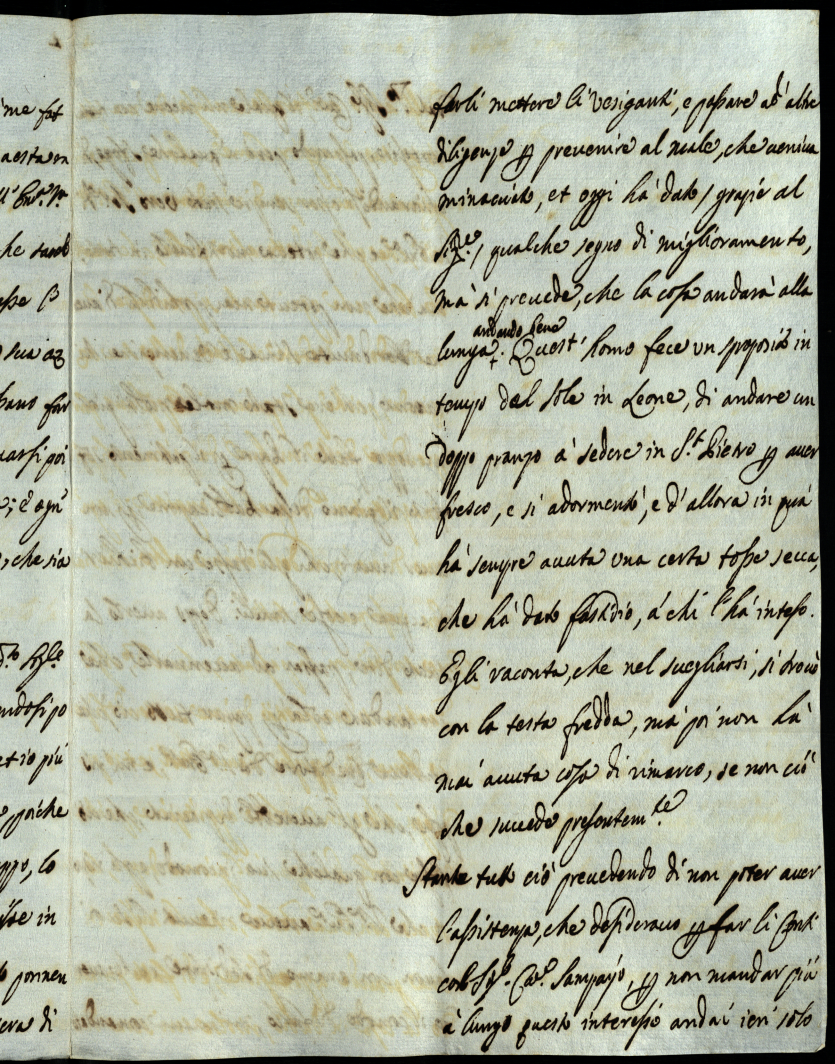 ime fat
aesta m
he sareb
esse
sua
sano far
uarsi poi
e; è ogn'
, che sia
endosi po
et io più
poiche
ppo, lo
in
era di
farli mettere li vesiganti, e passare ad' altre
diligenze p prevenire al male, che veniva
minaciato, et oggi hà dato / grazie al
Sig.re / qualche segno di miglioramento,
mà si prevede, che la cosa andarà alla
andando bene
lunga +. Quest' homo fece un sproposito in
tempo del sole in Leone, di andare un
doppo pranzo à sedere in S.t Pietro p aver
fresco, e si adormentò, e d'allora in quà
hà sempre avuta una certa tosse secca,
che hà dato fastidio, à chi l' hà inteso.
Egli raconta, che nel svegliarsi, si trovò
con la testa fredda, mà poi non hà
mai avuta cosa di rimarco, se non ciò
che succede presentem.te
Stante tutto ciò prevedendo di non poter aver
l'assistenza, che desideravo p far li Conti
col Sig.r Cav.r Sampajo, p non mandar più
à lungo questo interesse andai ieri solo